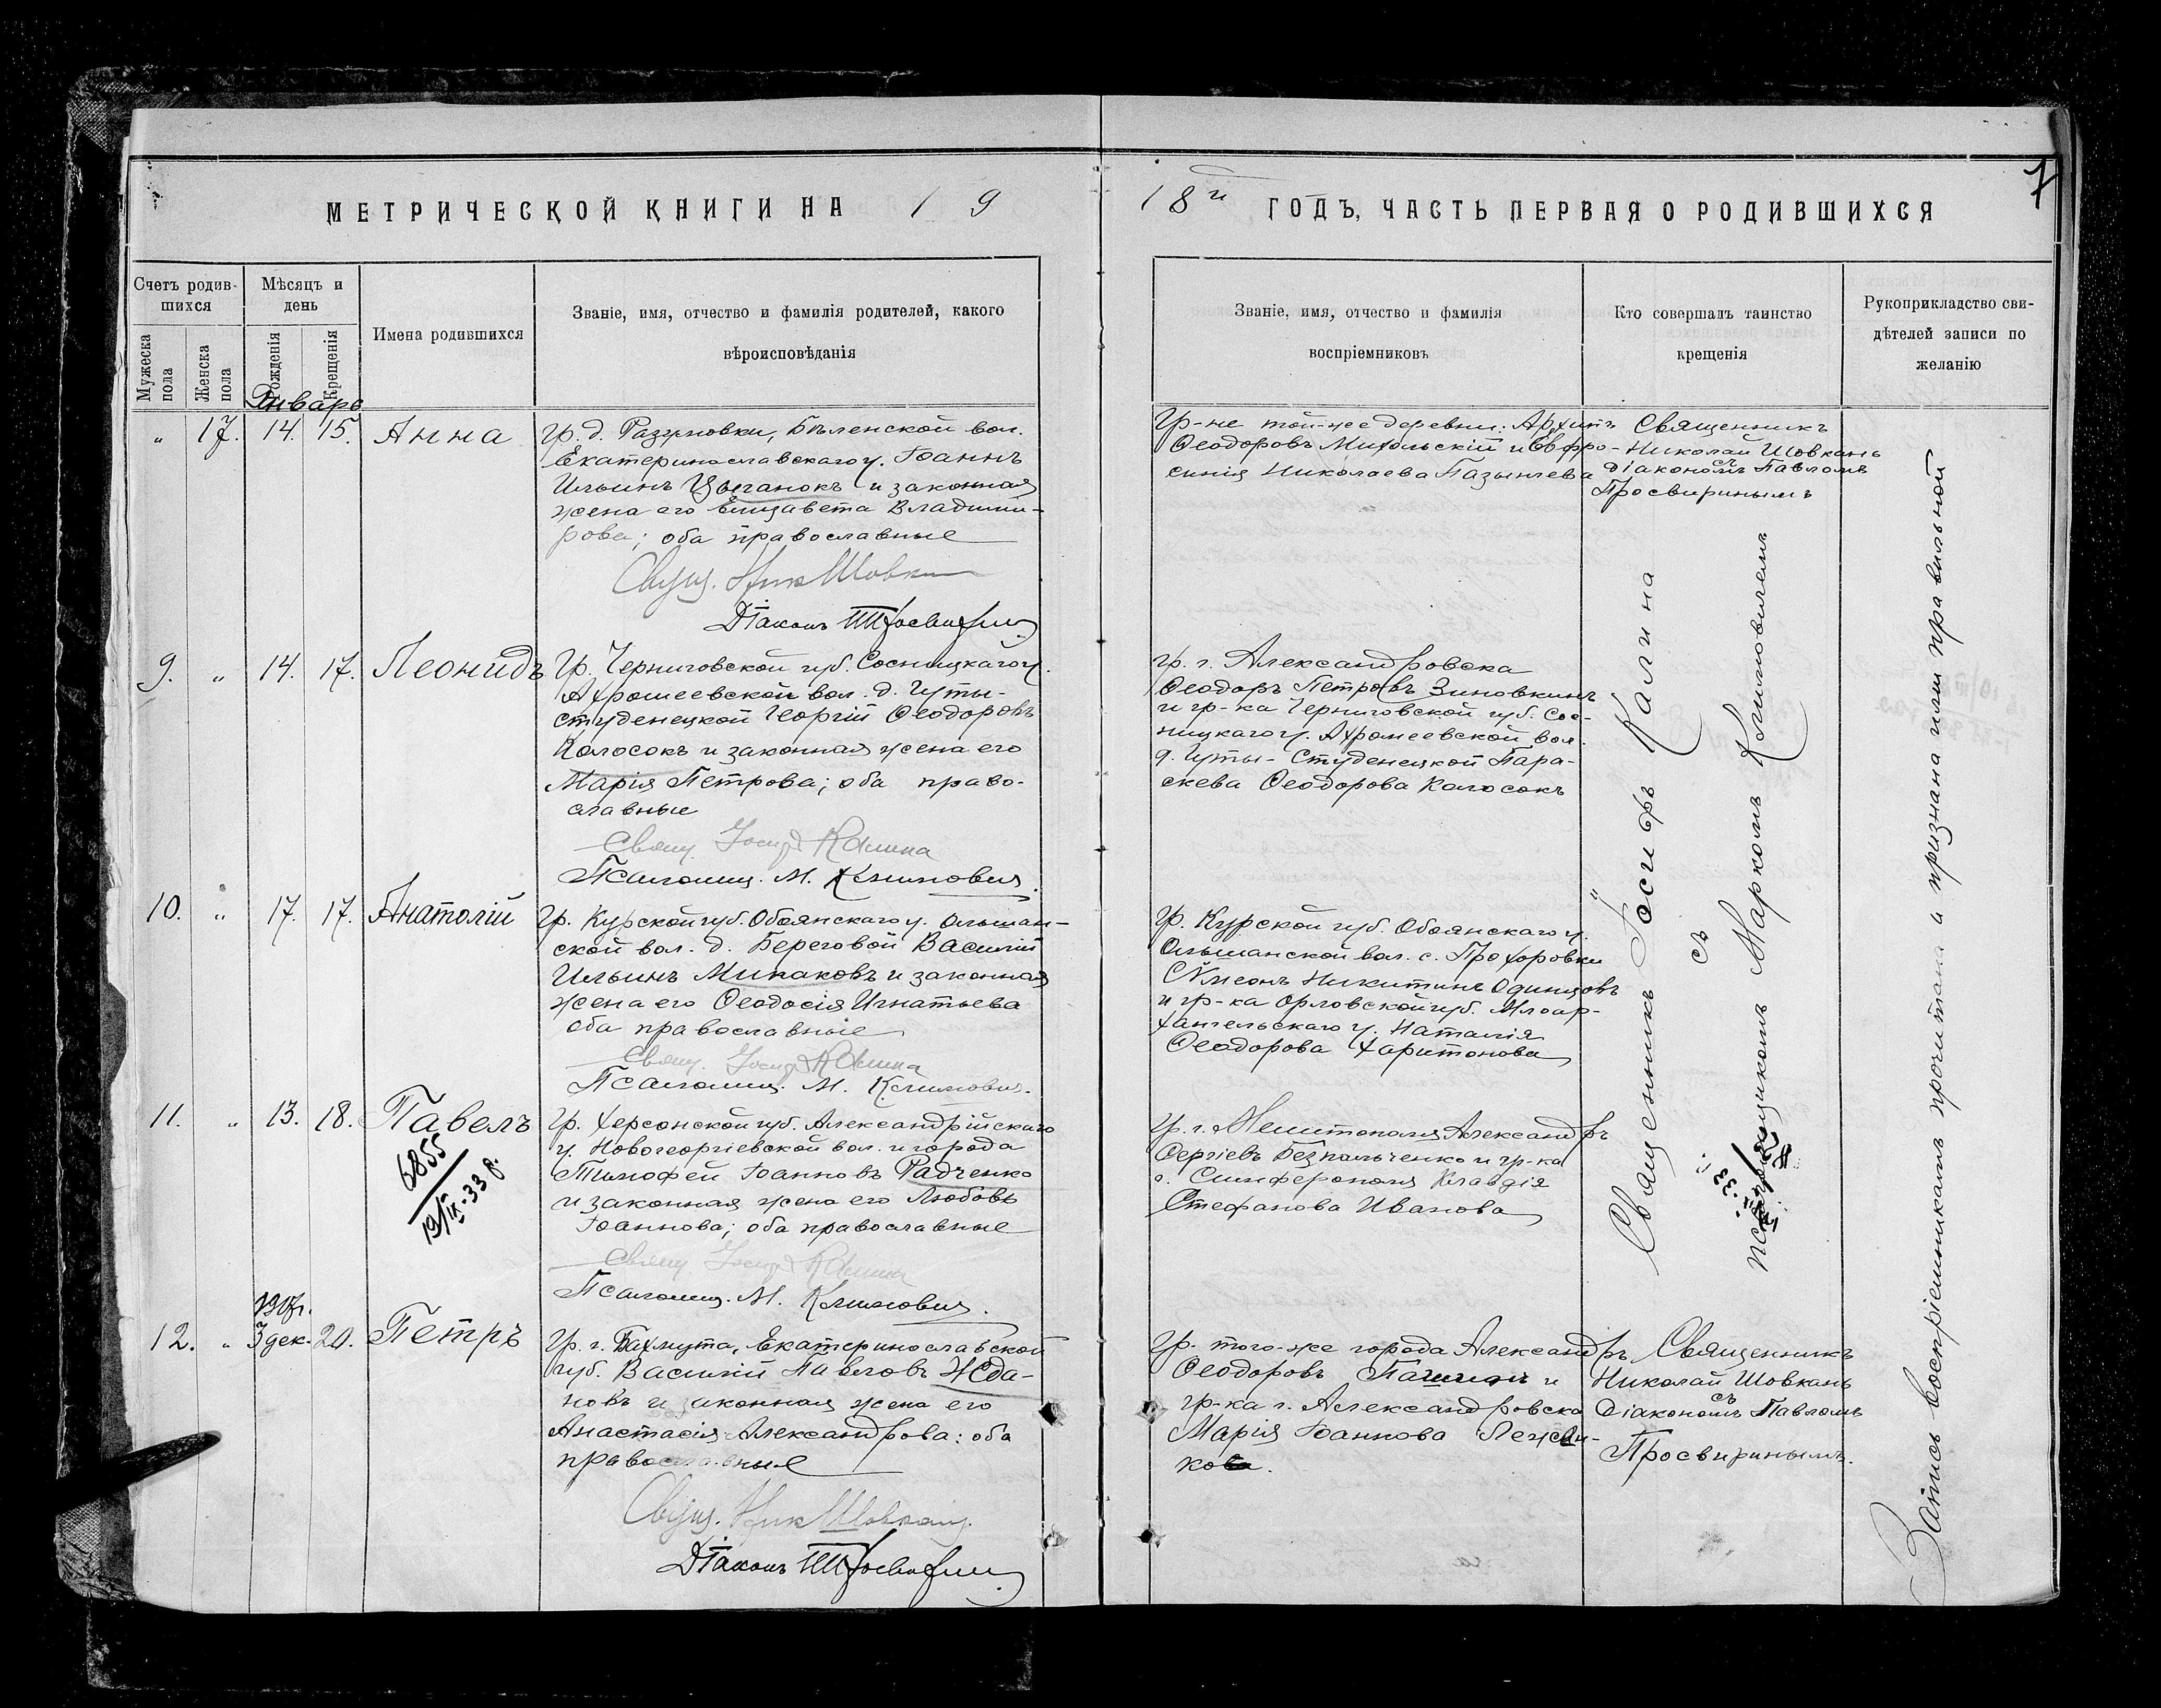 МЕТРИЧЕСКОЙ КНИГИ НА 19
18й ГОДЪ, ЧАСТЬ ПЕРВАЯ О РОДИВШИХСЯ
7
Счетъ родив-
шихся
Мужеска пола
Женска пола
Мѣсяцъ и
день
Рожденія
Крещенія
Имена родившихся
Званіе, имя, отчество и фамилія родителей, какого
вѣроисповѣданія
Званіе, имя, отчество и фамилія
воспріемниковъ
Кто совершалъ таинство
крещенія
Рукоприкладство сви-
дѣтелей записи по
желанію
Январь
" 17. 14. 15. Анна
гр. д. Разумовки, Бѣленской вол.
Екатеринославскаго у. Іоаннъ
Ильинъ Цыганокъ и законная
жена его Елизавета Владими-
рова; оба православные
Свящ. Ник Шовкан
Діаконъ П Просвирин
Гр-не той-же деревни: Архипъ
Ѳеодоровъ Михольскій и Евфро-
синія Николаева
Священникъ
Николай Шовкань
съ
діакономъ Павломъ
Просвиринымъ
9. " 14. 17. Леонидъ
Гр. Черниговской губ. Сосницкаго у.
Ахромеевской вол. д. Гуты-
студенецкой Георгій Ѳеодоровъ
Колосокъ и законная жена его
Марія Петрова; оба право-
славные
Свящ. Іосифъ Калина
Псаломщ. М. Климович.
гр. г. Александровска
Ѳеодоръ Петровъ Зиновкинъ
и гр-ка Черниговской губ. Сос-
ницкаго у. Ахромеевской вол.
д. Гуты-Студенецкой Пара-
скева Ѳеодорова Колосокъ
10. " 17. 17. Анатолій
Гр. Курской губ. Обоянскаго у. Ольшан-
ской вол. д. Береговой Василій
Ильинъ Минаковъ и законная
жена его Ѳеодосія Игнатьева
оба православные
Свящ. Іосифъ Калина
Псаломщ. М. Климович.
гр. Курской губ. Обоянскаго у.
Ольшанской вол. с. Прохоровки
Сѵмеонъ Никитинъ Одинцовъ
и гр-ка Орловской губ. Млоар-
хангельскаго у. Наталія
Ѳеодорова Харитонова
11. " 13. 18. Павелъ
6855
19/IX-33 г.
Гр. Херсонской губ. Александрійскаго
у. Новогеоргіевской вол. и города
Тимофей Іоанновъ Радченко
и законная жена его Любовь
Іоаннова; оба православные
Свящ Іосифъ Калина
Псаломщ. М. Климович.
Гр. г. Мелитополя Александръ
Сергіевъ Безпальченко и гр-ка
г. Симферополя Клавдія
Стефанова Иванова
Священникъ Іосифъ Калина
съ
псаломщикомъ Маркомъ Климовичемъ
1917 г.
12. " 3 дек. 20. Петръ
Гр. г. Бахмута, Екатеринославской
губ. Василій Павловъ Жда-
новъ и законная жена его
Анастасія Александрова: оба
православные
Свящ. Ник Шовкан
Діаконъ П Просвирин
гр. того-же города Александръ
Ѳеодоровъ и
гр-ка г. Александровска
Марія Іоаннова
Священникъ
Николай Шовкань
съ
Діакономъ Павломъ
Просвиринымъ.
Запись воспріемникамъ прочитана и признана ими правильной